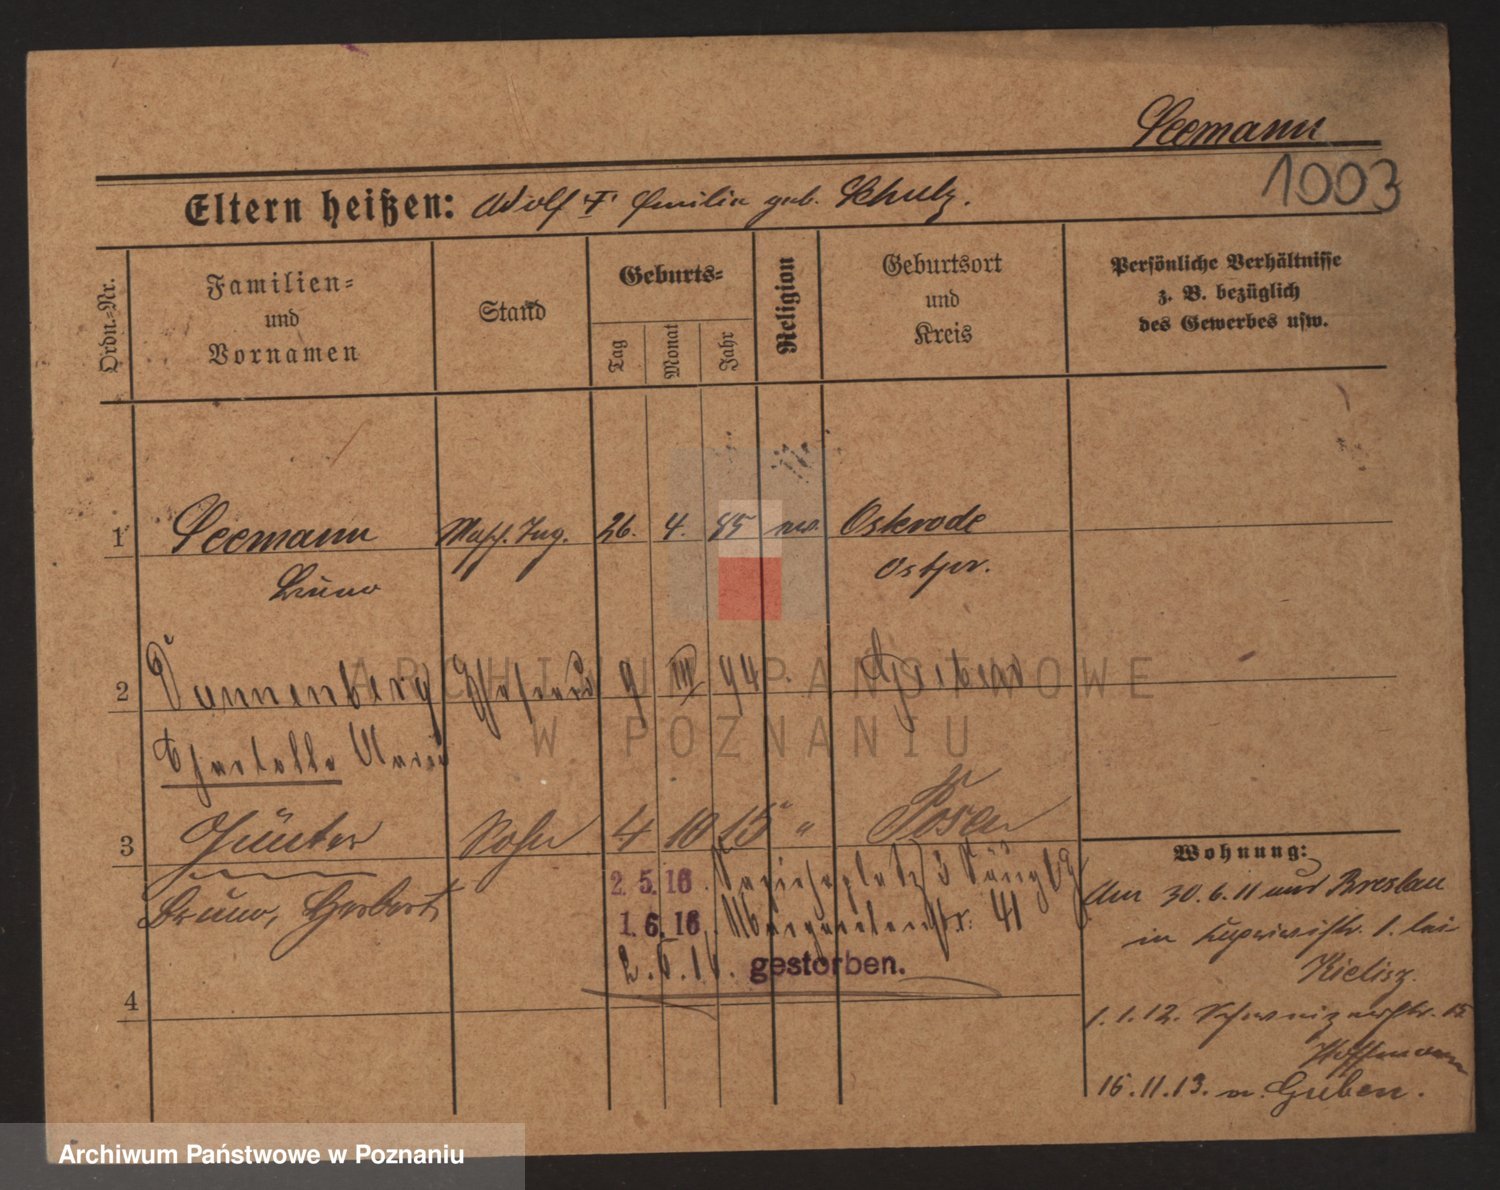 Seemann
1003
Eltern heißen: Adolf u. Emilie geb. Schulz.
Ordn.-Nr.
Familien-
und
Vornamen
Stand
Geburts-
Tag
Monat
Jahr
Religion
Geburtsort
und
Kreis
Persönliche Verhältnisse
z. B. bezüglich
des Gewerbes usw.
1 Seemann Masch. Ing. 26. 4. 85 Osterode
Bruno Ostpr.
2 Dannenberg Ehefrau 9 III 94 Guben
Charlotte Marie
3 Günter Sohn 4 10 15 " Posen
Bruno, Herbert
2.5.16. 3
1.6.16. Margaretenstr. 41
2.6.16. gestorben.
4
Wohnung:
Am 30.6.11 aus Breslau
in 1. bei
1.1.12. 15
Hoffmann
15.11.13. n. Guben.
ARCHIWUM PAŃSTWOWE
W POZNANIU
Archiwum Państwowe w Poznaniu